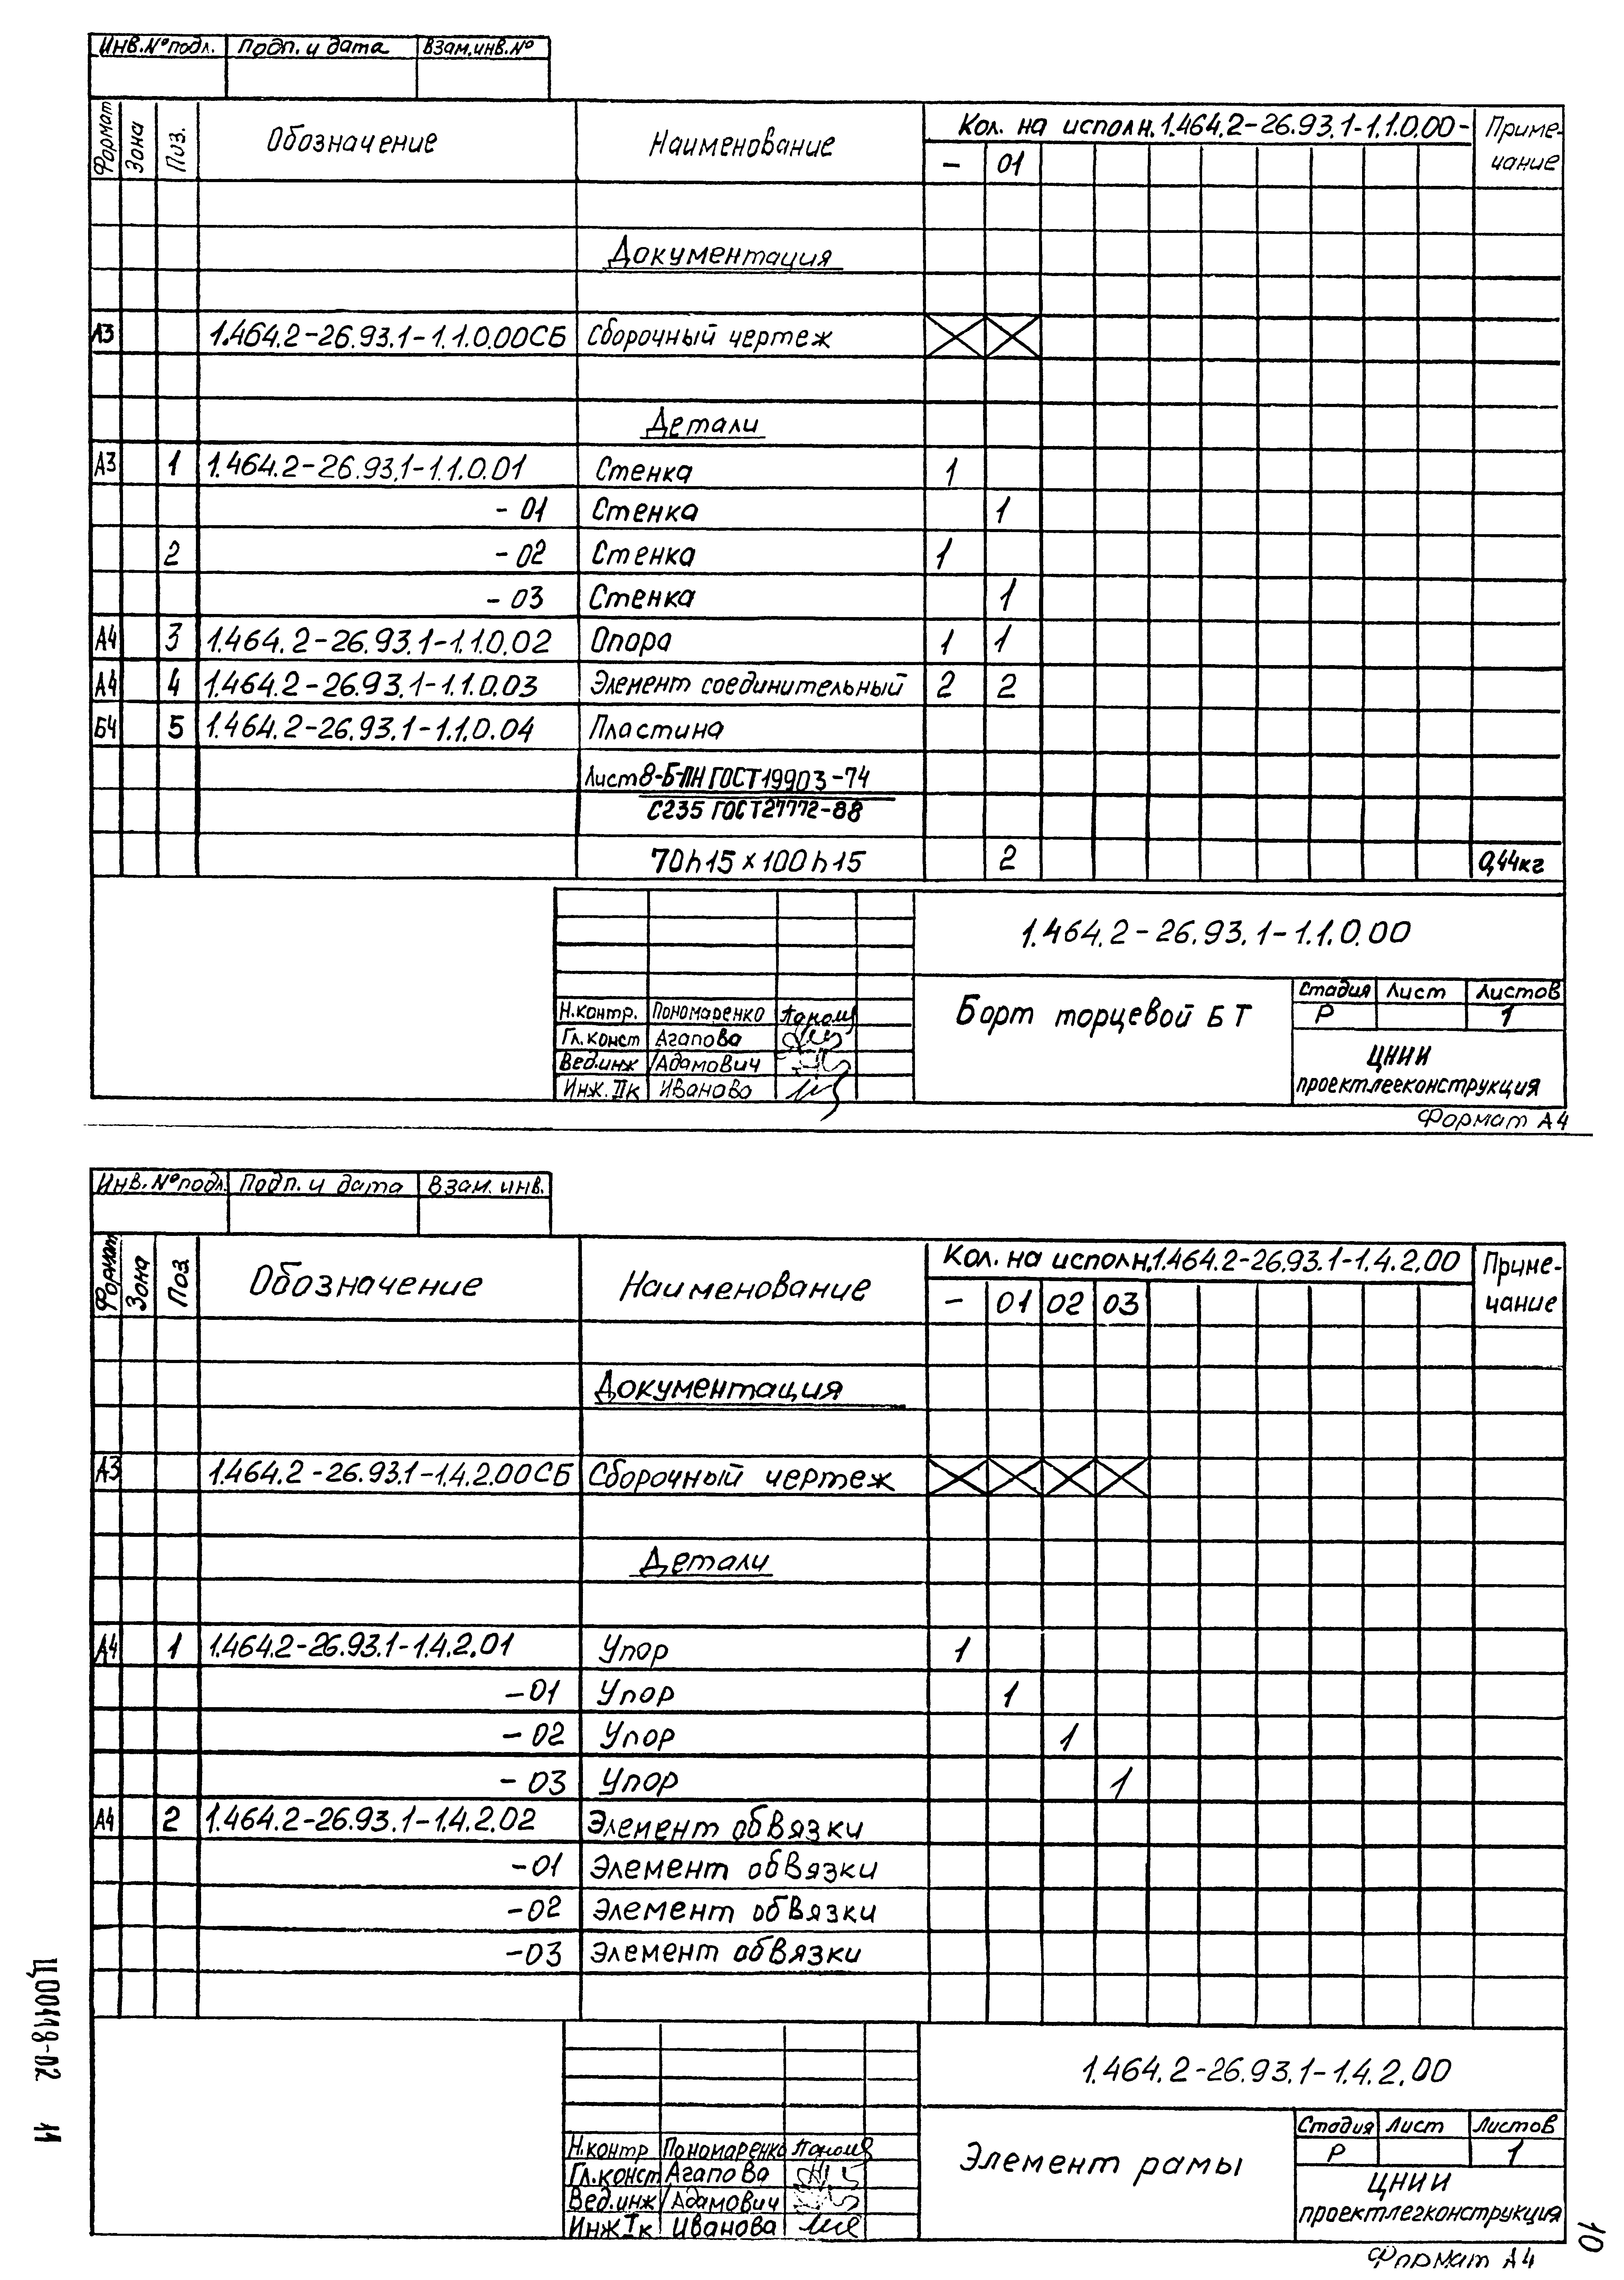 Инв.№подл. Подп. и дата Взам.инв.№
Формат Зона Поз. Обозначение Наименование Кол. на исполн.1.464.2-26.93.1-1.1.0.00- Приме-
чание
- 01
Документация
А3 1.464.2-26.93.1-1.1.0.00СБ Сборочный чертеж
Детали
А3 1 1.464.2-26.93.1-1.1.0.01 Стенка 1
-01 Стенка 1
2 -02 Стенка 1
-03 Стенка 1
А4 3 1.464.2-26.93.1-1.1.0.02 Опора 1 1
А4 4 1.464.2-26.93.1-1.1.0.03 Элемент соединительный 2 2
Б4 5 1.464.2-26.93.1-1.1.0.04 Пластина
Лист 8-Б-ПН ГОСТ 19903-74
С235 ГОСТ 27772-88
70h15 х 100h15 2 0,44кг
1.464.2-26.93.1-1.1.0.00
Н.контр. Пономаренко
Гл.конст Агапова
Вед.инж Адамович
Инж. IIк Иванова
Борт торцевой БТ
Стадия Лист Листов
Р 1
ЦНИИ
проектлегконструкция
Формат А4
Инв. №подл. Подп. и дата Взам. инв.
Формат Зона Поз Обозначение Наименование Кол. на исполн.1.464.2-26.93.1-1.4.2.00 Приме-
чание
- 01 02 03
Документация
А3 1.464.2-26.93.1-1.4.2.00СБ Сборочный чертеж
Детали
А4 1 1.464.2-26.93.1-1.4.2.01 Упор 1
-01 Упор 1
-02 Упор 1
-03 Упор 1
А4 2 1.464.2-26.93.1-1.4.2.02 Элемент обвязки
-01 Элемент обвязки
-02 Элемент обвязки
-03 Элемент обвязки
1.464.2-26.93.1-1.4.2.00
Н.контр Пономаренко
Гл.конст Агапова
Вед.инж Адамович
Инж Iк Иванова
Элемент рамы
Стадия Лист Листов
Р 1
ЦНИИ
проектлегконструкция
Формат А4
Ц00118-02 11
10